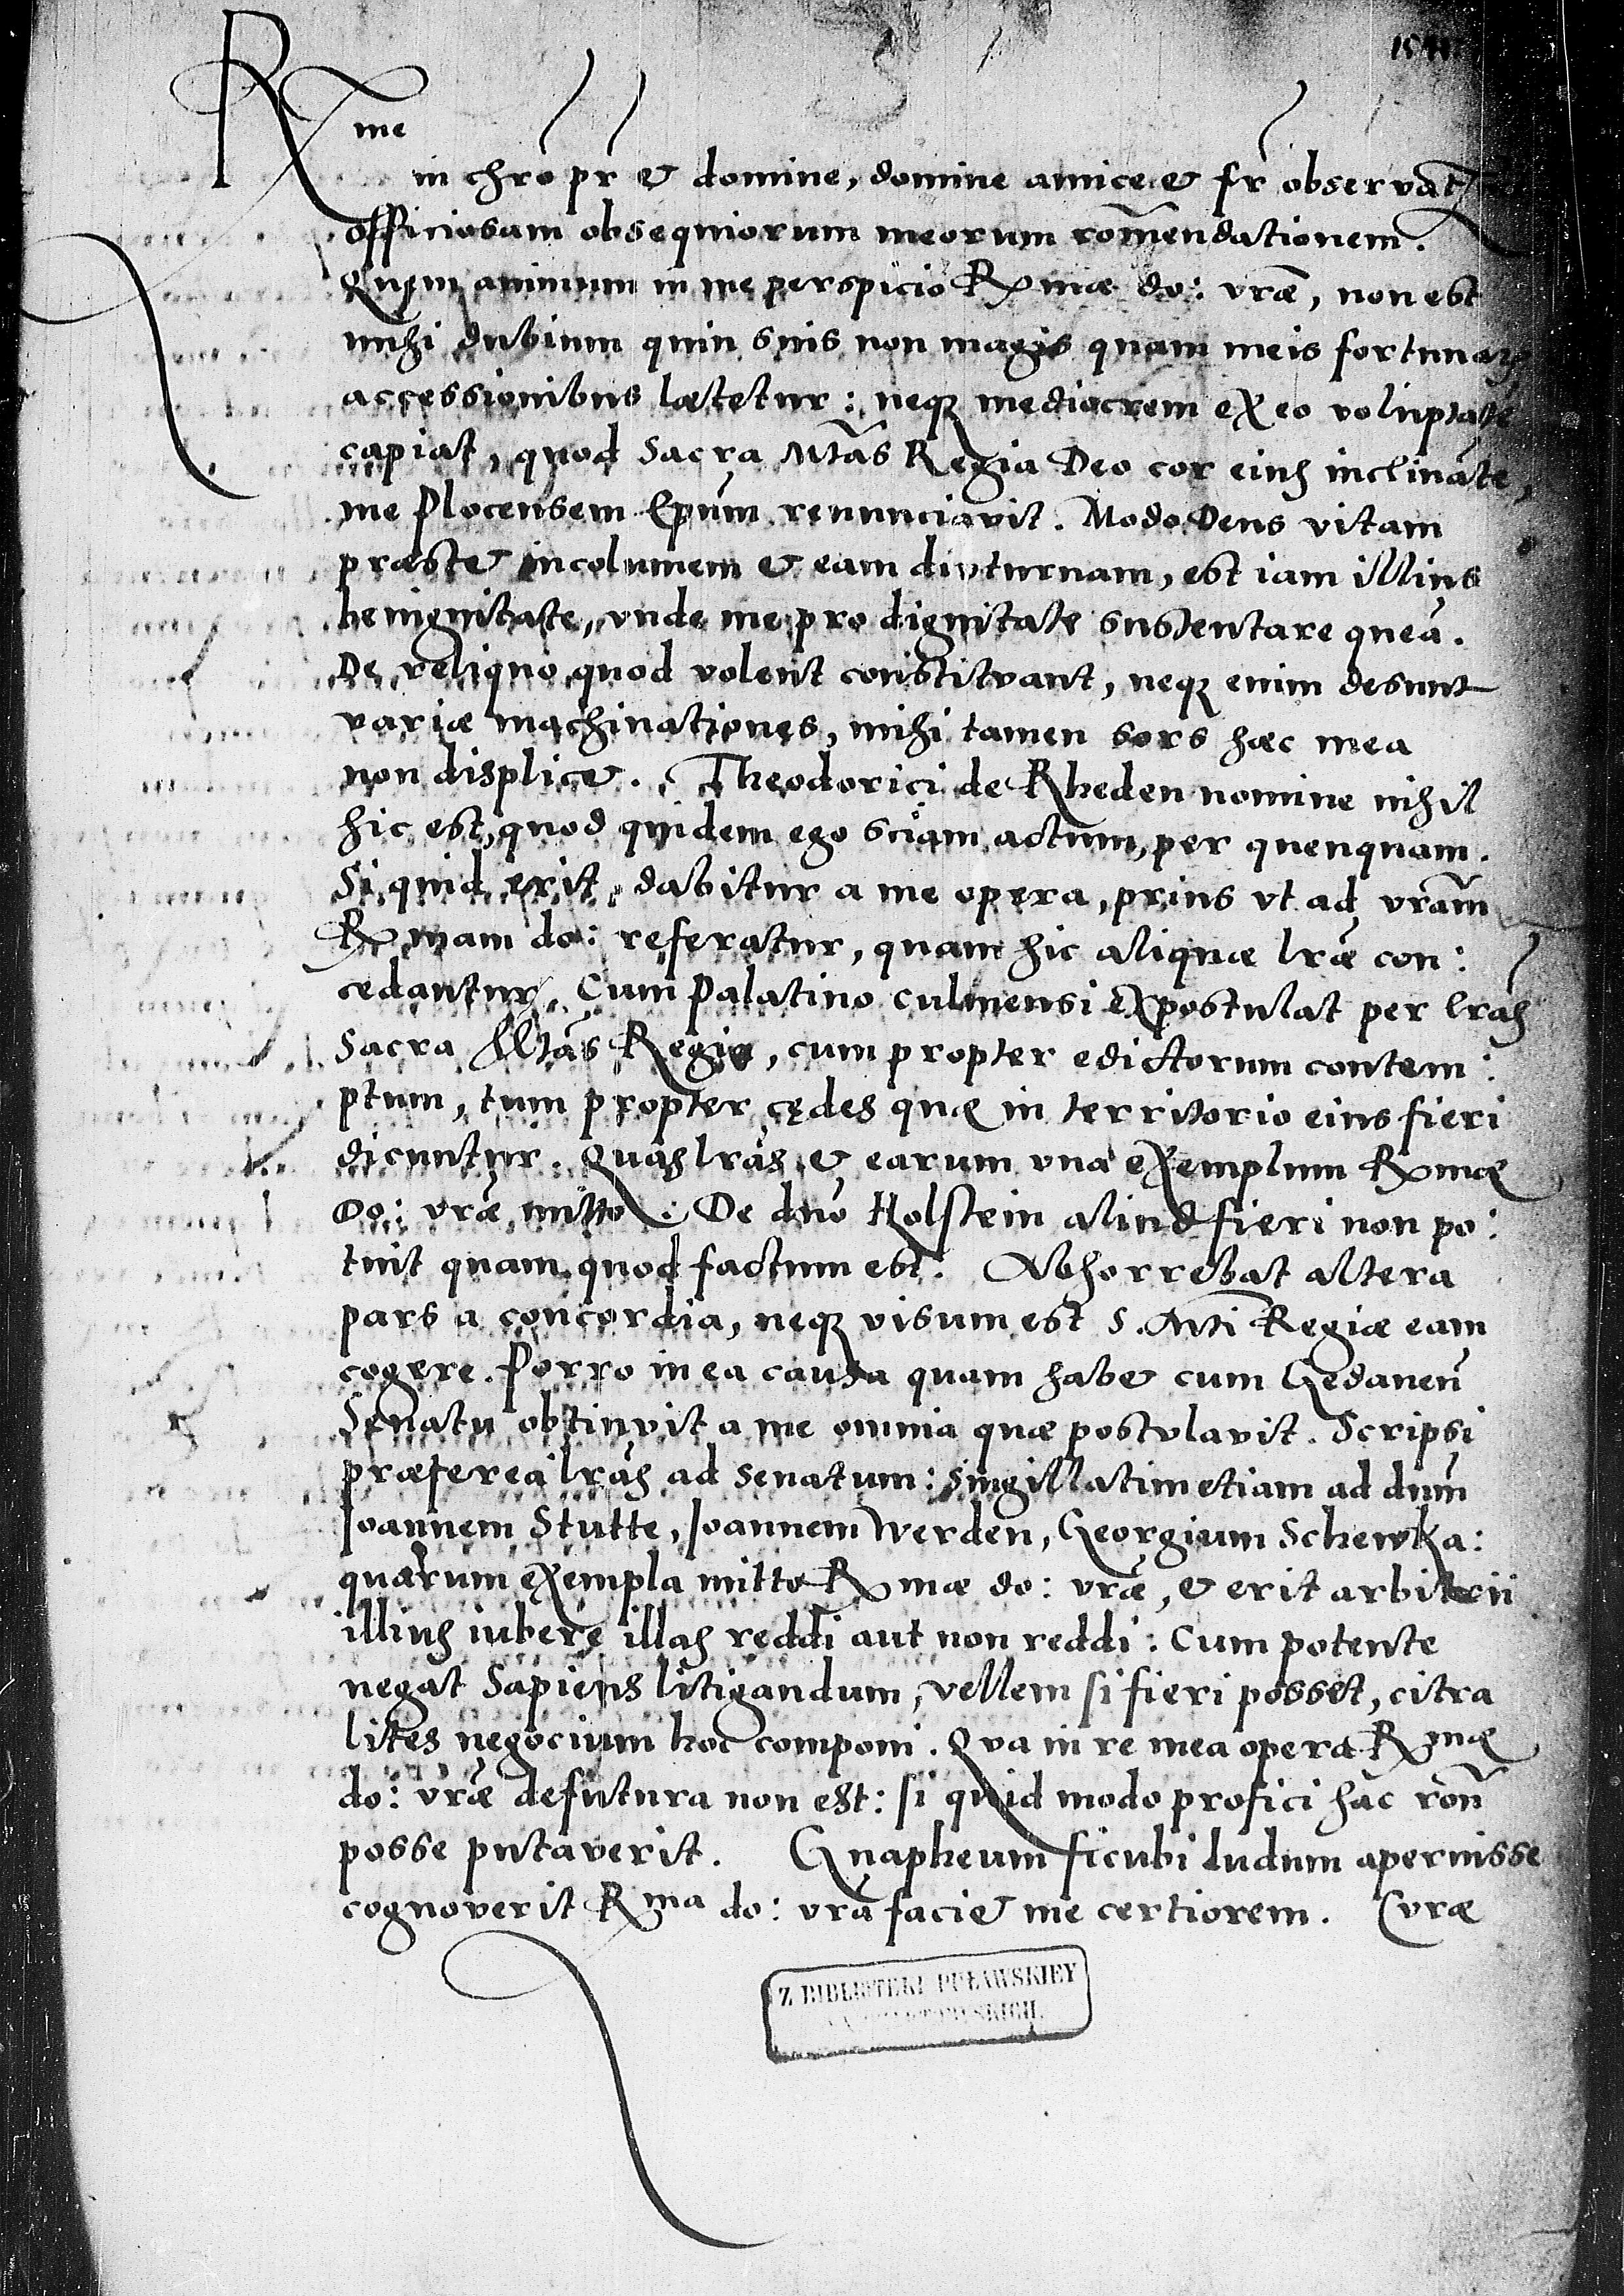 Rme
in chro pr & domine, domine amice & fr observat
officiosam obsequiorum meorum comendationem.
Quem animum in me perspicio Rmæ do: vræ, non est
mihi dubium quin suis non magis quam meis fortunarum
accessionibus lætetur: neqz mediocrem ex eo voluptate
capiat, quod Sacra Mtas Regia Deo cor eius inclinate,
me Plocensem Epum renunciavit. Modo Deus vitam
præstet incolumem & eam divturnam, est iam illius
benignitate, vnde me pro dignitate sustentare queã.
De reliquo quod volent constitvant, neqz enim desunt
variæ machinationes, mihi tamen sors hæc mea
non displicet. Theodorici de Rheden nomine nihil
hic est, quod quidem ego sciam actum, per quenquam.
Si quid erit, dabitur a me opera, prius vt ad vram
Rmam do: referatur, quam hic aliquæ lræ con:
cedantur. Cum Palatino Culmensi expostulat per lras
Sacra Mtas Regia, cum propter edictorum contem:
ptum, tum propter cędes quæ in territorio eius fieri
dicuntur. Quas lras & earum vna exemplum Rmæ
Do: vræ mitto. De dno Holstein aliud fieri non po:
tuit quam quod factum est. Abhorrebat altera
pars a concordia, neqz visum est S. Mti Regiæ eam
cogere. Porro in ea causa quam habet cum Gedanen
Senatu obtinvit a me omnia quæ postvlavit. Scripsi
præterea lras ad Senatum: Singillatim etiam ad dnm
Joannem Stutte, Joannem Werden, Georgium Schewka:
quarum exempla mitto Rmæ do: vræ, & erit arbitrii
illius iubere illas reddi aut non reddi: Cum potente
negat Sapiens litigandum, vellem si fieri posset, citra
lites negocium hoc componi. Qva in re mea opera Rmæ
do: vræ defutura non est: si quid modo profici hac ron
posse putaverit. Gnapheum sicubi ludum aperuisse
cognoverit Rma do: vra faciet me certiorem. Cvræ
Z BIBLIOTEKI PUŁAWSKIEY